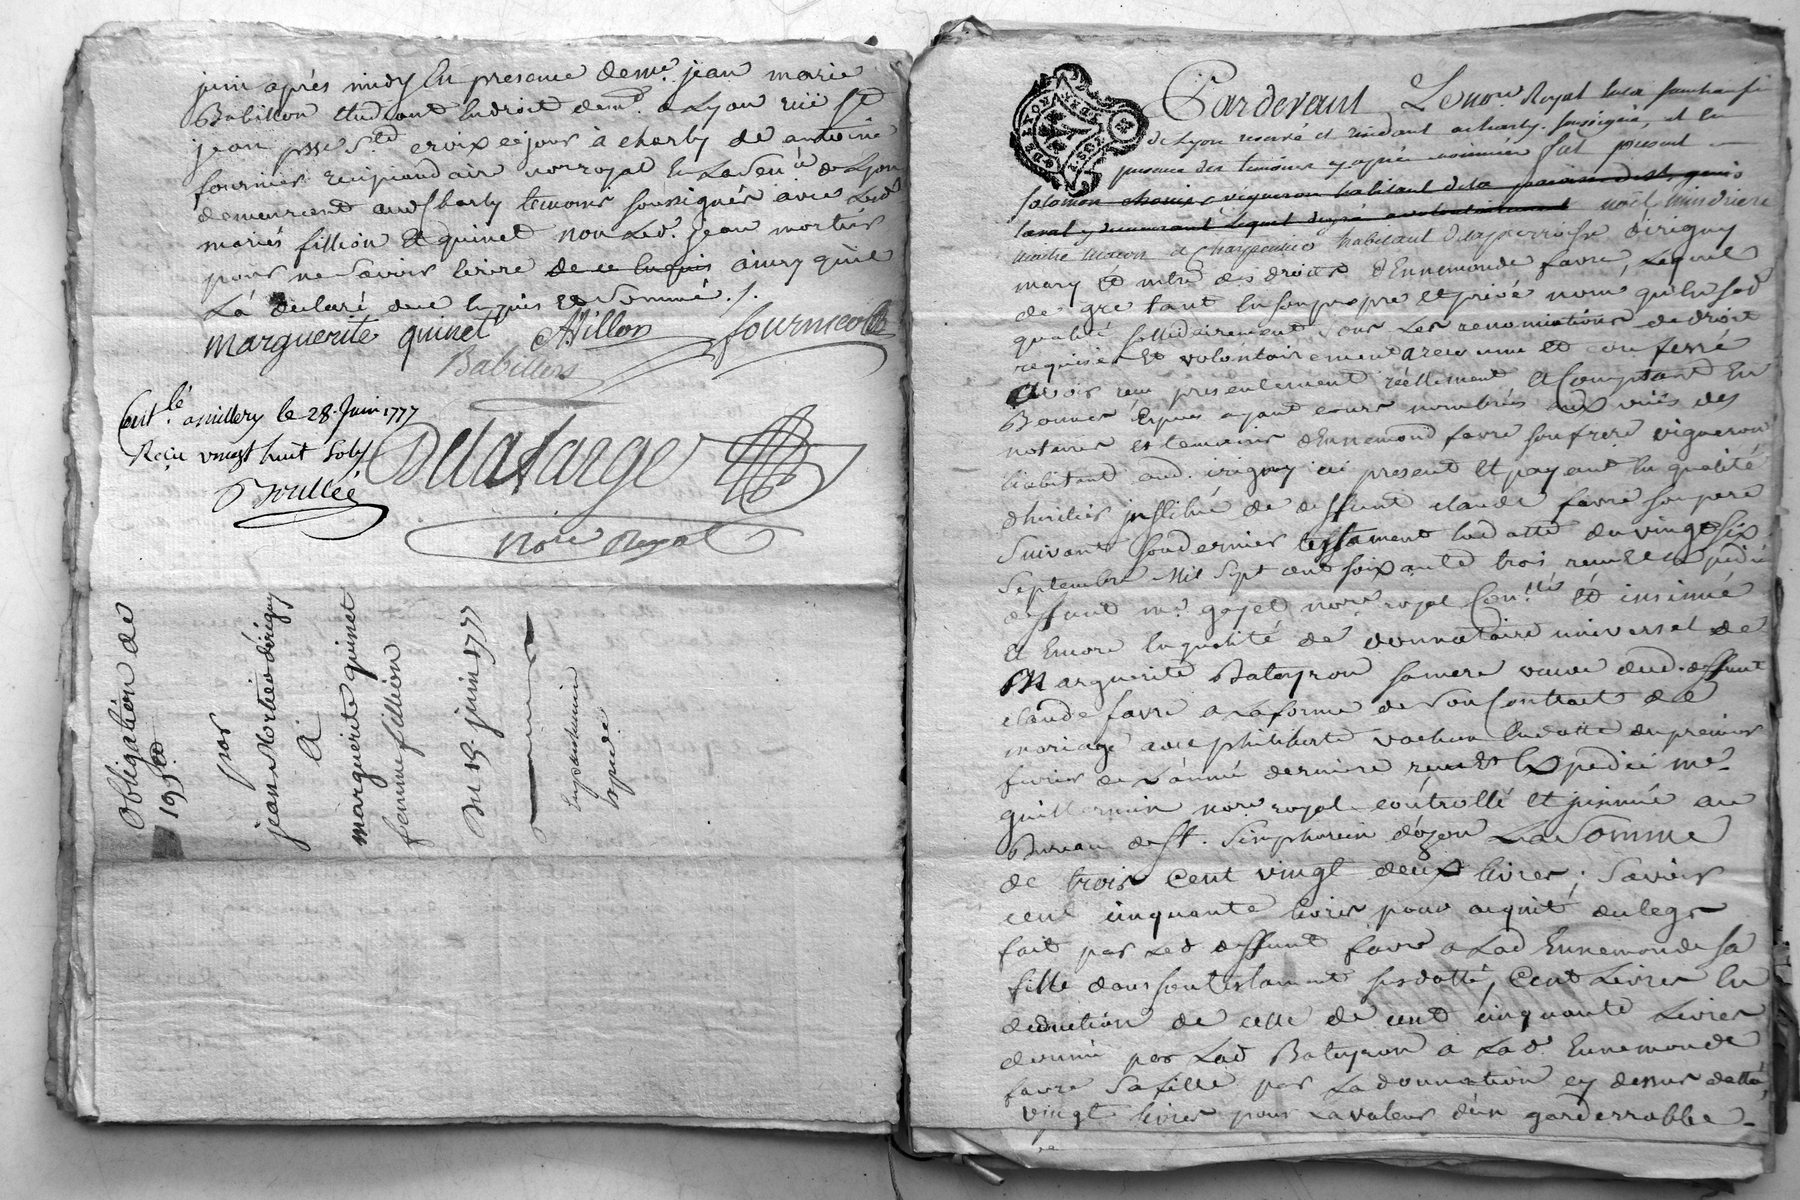 juin après midy En presence de me. jean marie
Babillon Etudiant Endroit dem.t a Lyon rüe St
jean psse Ste croix ce jour à charly de antoine
fournier no.re royal En La Sen.ée de Lyon
demeurant aud Charly temoins soussignés avec Lesd
mariés fillion Et quinet non Led. jean mortier
pour ne Savoir Ecrire de ce Enquis ainsy qu'il
La declaré de ce Enquis Et Sommé ./.
marguerite quinet fillion fournier
Babillon
Cont.lé a millery le 28. Juin 1777
Reçu vingt huit Sols
Delafarge
nore Royal
Obligation de
195 #
par
jean Mortier dirigny
A
marguerite quinet
femme fillion
Du 15 juin 1777
Expediée
GEN. DE LYON
Pardevant Le no.re Royal En la senechaussée
de Lyon reservé et residant a charly soussigné, et En
presence des temoins cy après nommés fut present
Salomon vigneron habitant de la paroisse de St genis
Laval y demeurant Lequel de gré a volontairement noël
maitre charpentier habitant de la parroisse d'irigny
mary Et mtre des droits d'Ennemonde favre, Lequel
de gré tant En son propre Et privé nom qu'En sad
qualité sollidairement sous Les renonciations de droit
requises Et volontairement a reconnu et confessé
avoir reçu presentement réellement Et Comptant En
Bonnes Especes ayant cours nombrés aux vües des
notaire et temoins d'Ennemond favre son frere vigneron
habitant aud. irigny ici present Et payant En qualité
d'heritier institué de deffunt claude favre son pere
Suivant son dernier testament En datte du vingt six
Septembre Mil Sept cent soixante trois reçu Et Expedié
deffunt me. gayet nore royal Con.llé Et insinué
Et Encore En qualité de donnataire universel de
Marguerite Bateyron sa mere veuve dud. deffunt
claude favre a La forme de son Contract de
mariage avec philiberte vachon En datte du premier
fevrier de L'année derniere reçu Et Expedié me.
guillermin nore royal controllé Et insinué au
Bureau de St. Simphorien d'ozon La Somme
de trois Cent vingt deux livres; Savoir
cent cinquante livres pour acquit du legs
fait par Led deffunt favre a Lad Ennemonde sa
fille dans son testament susdatté, Cent Livres En
deduction de celle de cent cinquante Livres
donné par Lad Bateyron a Lad. Ennemonde
favre Sa fille par La donnation cy dessus datté,
vingt livres pour La valeur d'un garderrobbe